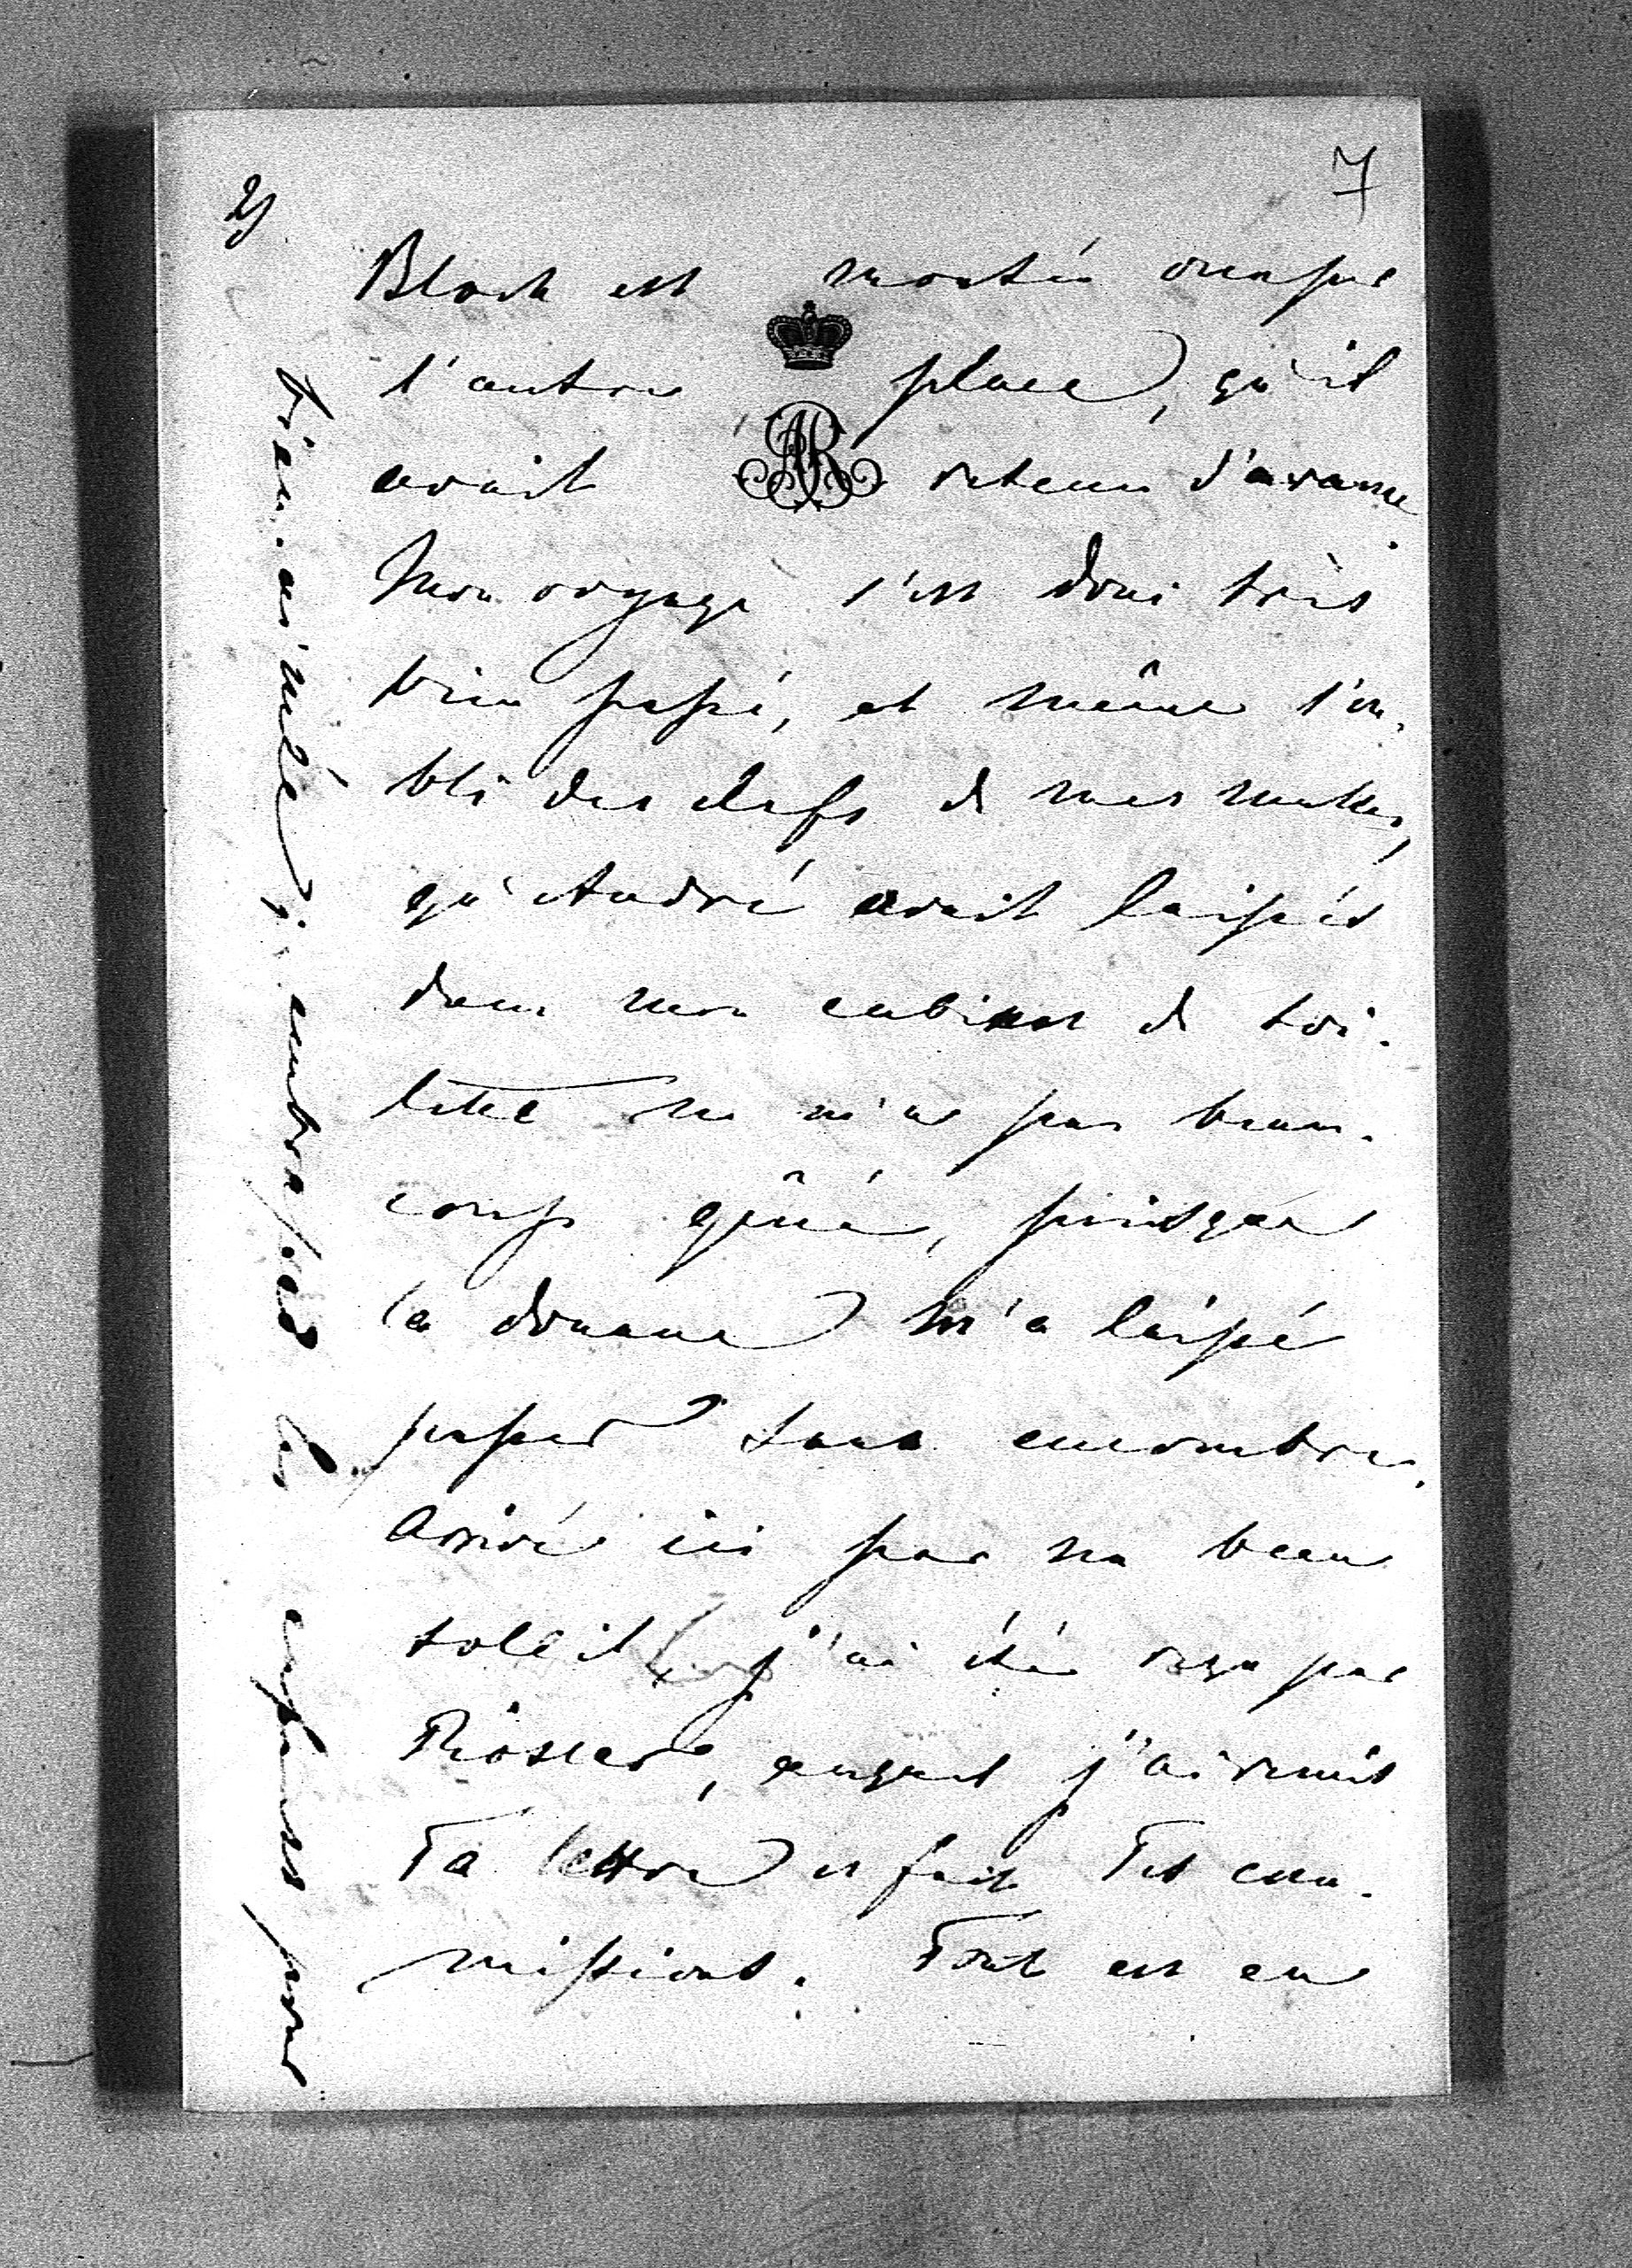 7
2)
Block est monté occuper
l'autre place, qu'il
avait retenu d'avance.
Mon voyage s'est donc très
bien passé, et même l'ou-
bli des clefs de mes malles,
qu'André avait laissés
dans mon cabinet de toi-
lette ne m'a pas beau-
coup gêné, puisque
la douane m'a laissé
passer sans encombre.
Arrivé ici par un beau
soleil, j'ai été reçu par
auquel j'ai remis
Ta lettre et fait Tes com-
missions. Tout est en
bien-aimée, j'embrasse les enfants pour